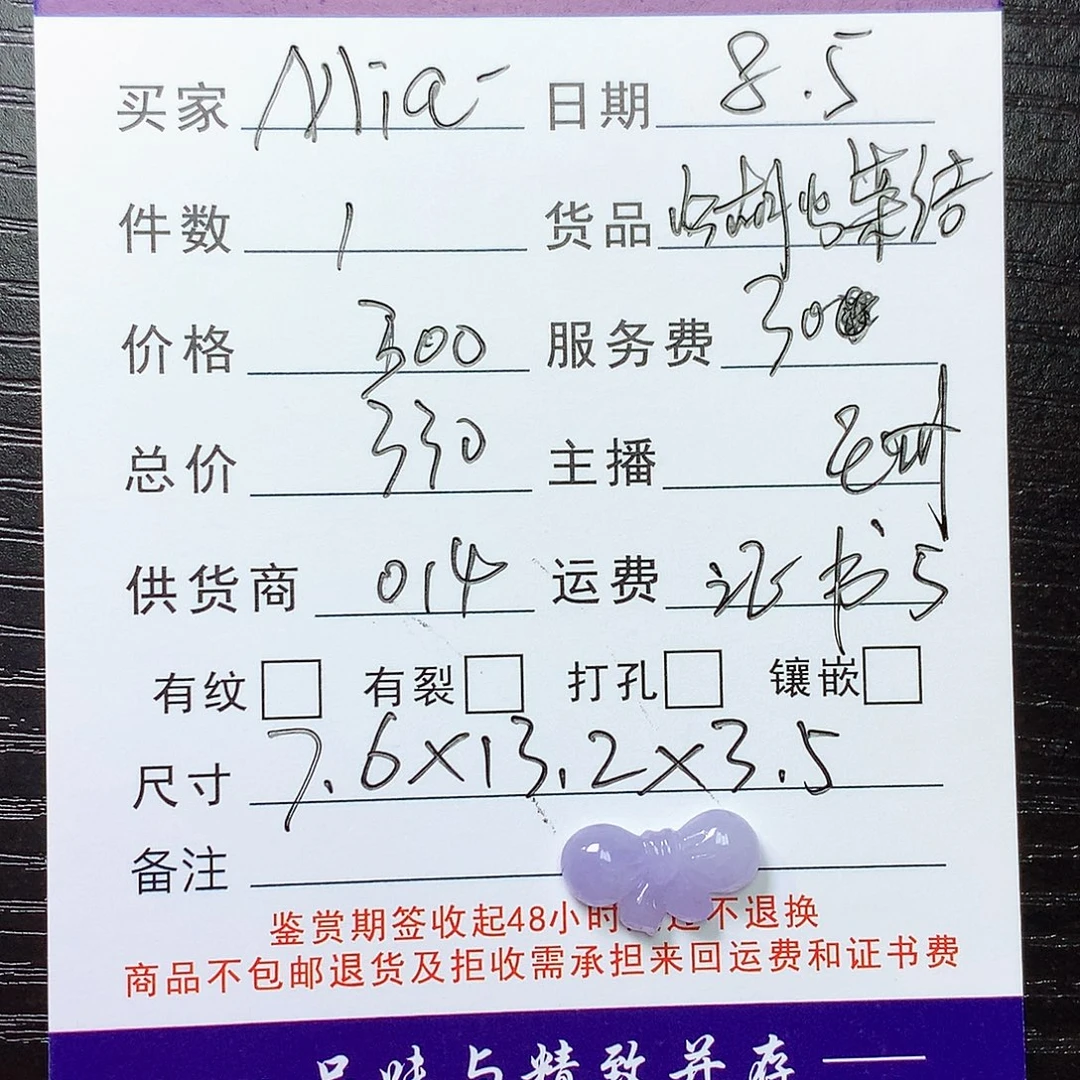 买家 Alicia 日期 8.5
件数 1 货品 结
价格 300 服务费 30
总价 330 主播
供货商 014 运费 证书5
有纹 有裂 打孔 镶嵌
尺寸 7.6×13.2×3.5
备注
鉴赏期签收起48小时 不退换
商品不包邮退货及拒收需承担来回运费和证书费
品味与精致并存